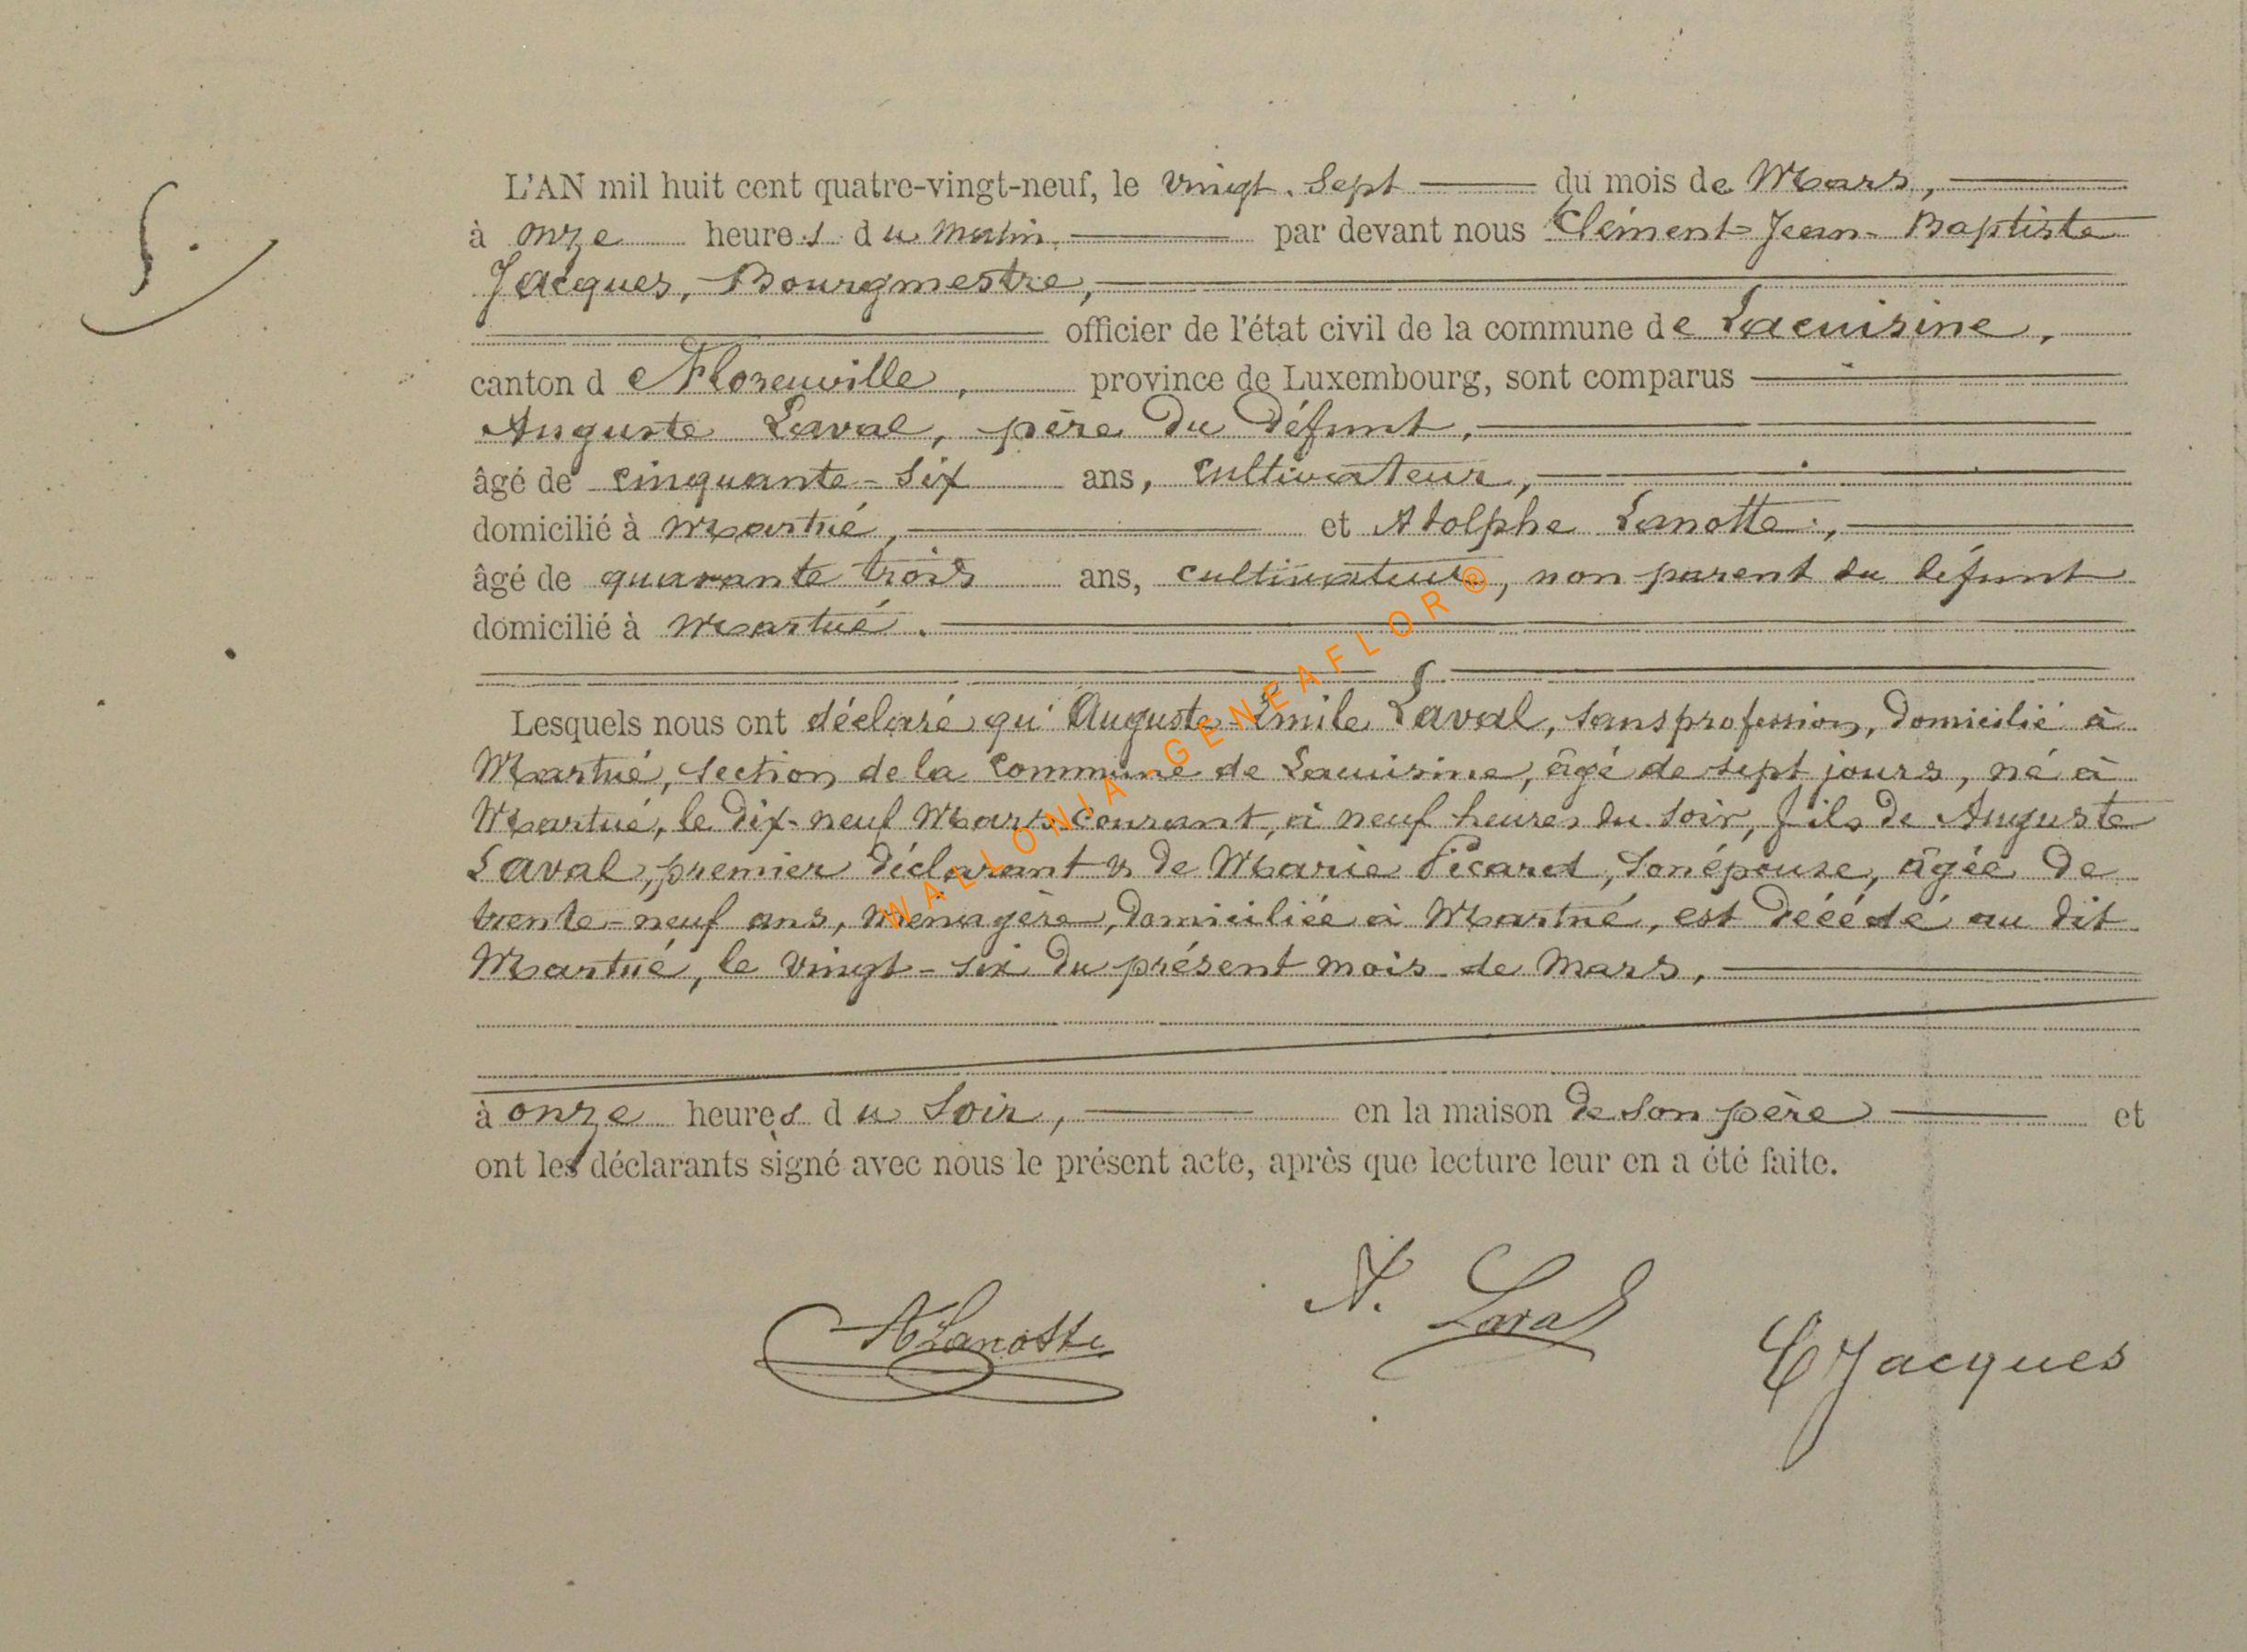 5.
L'AN mil huit cent quatre-vingt-neuf, le vingt-sept du mois de Mars,
à onze heures du matin, par devant nous Clément-Jean-Baptiste
Jacques, Bourgmestre,
officier de l'état civil de la commune de Lacuisine,
canton de Florenville, province de Luxembourg, sont comparus
Auguste Laval, père du défunt,
âgé de cinquante-six ans, cultivateur,
domicilié à Martué, et Adolphe Lanotte,
âgé de quarante trois ans, cultivateur, non parent du défunt
domicilié à Martué.
Lesquels nous ont déclaré qu'Auguste-Emile Laval, sans profession, domicilié à
Martué, section de la commune de Lacuisine, âgé de sept jours, né à
Martué, le dix-neuf Mars courant, à neuf heures du soir, fils de Auguste
Laval, premier déclarant & de Marie Picard, son épouse, âgée de
trente-neuf ans, ménagère, domiciliée à Martué, est décédé au dit
Martué, le vingt-six du présent mois de Mars,
à onze heures du soir, en la maison de son père et
ont les déclarants signé avec nous le présent acte, après que lecture leur en a été faite.
ALanotte
A. Laval
CJacques
WALLONIA-GENEAFLOR®